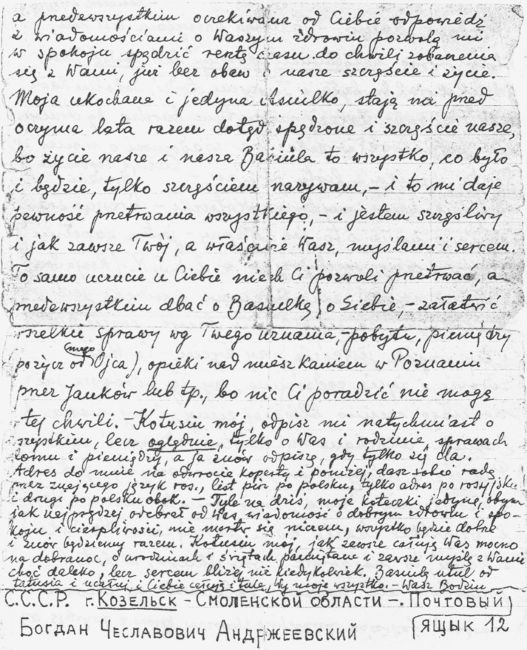 a przedewszystkim oczekiwana od Ciebie odpowiedź
z wiadomościami o Waszym zdrowiu pozwolą mi
w spokoju spędzić resztę czasu do chwili zobaczenia
się z Wami, już bez obaw o nasze szczęście i życie.
Moja ukochana i jedyna stają mi przed
oczyma lata razem dotąd spędzone i szczęście nasze,
bo życie nasze i nasza Basiula to wszystko, co było
i będzie, tylko szczęściem nazywam, – i to mi daje
pewność przetrwania wszystkiego, – i jestem szczęśliwy
i jak zawsze Twój, a właściwie Wasz, myślami i sercem.
To samo uczucie u Ciebie niech Ci pozwoli przetrwać, a
przedewszystkim dbać o Basiulkę, o Siebie, – załatwić
wszelkie sprawy wg Twego uznania – pobytu, pieniędzy
(pożycz od mego Ojca), opieki nad mieszkaniem w Poznaniu
przez Janków lub tp., bo nic Ci poradzić nie mogę
w tej chwili. – Kotusiu mój, odpisz mi natychmiast o
wszystkim, lecz oględnie, tylko o Was i rodzinie, sprawach
domu i pieniędzy, a ja znów odpiszę, gdy tylko się da.
Adres do mnie na odwrocie koperty i poniżej, dasz sobie radę
przez znającego język ros., list pisz po polsku, tylko adres po rosyjsku
i drugi po polsku obok. – Tyle na dziś, moje koteczki jedyne, obym
jak najprędzej odebrał od Was wiadomość o dobrym zdrowiu i spo-
koju i cierpliwości, nie martw się niczem, wszystko będzie dobrze
i znów będziemy razem. Kotusiu mój, jak zawsze całuję Was mocno
na dobranoc, o urodzinach i świętach pamiętam i zawsze myślę z Wami
choć daleko, lecz sercem bliżej niż kiedykolwiek. Basiulę utul od
tatusia i ucałuj, i Ciebie całuję i tulę, Ty moje wszystko. – Wasz Bodzio
С.С.С.Р. г. Козельск – Смоленской области –. Почтовый
ящык 12
Богдан Чеславович Андржеевский